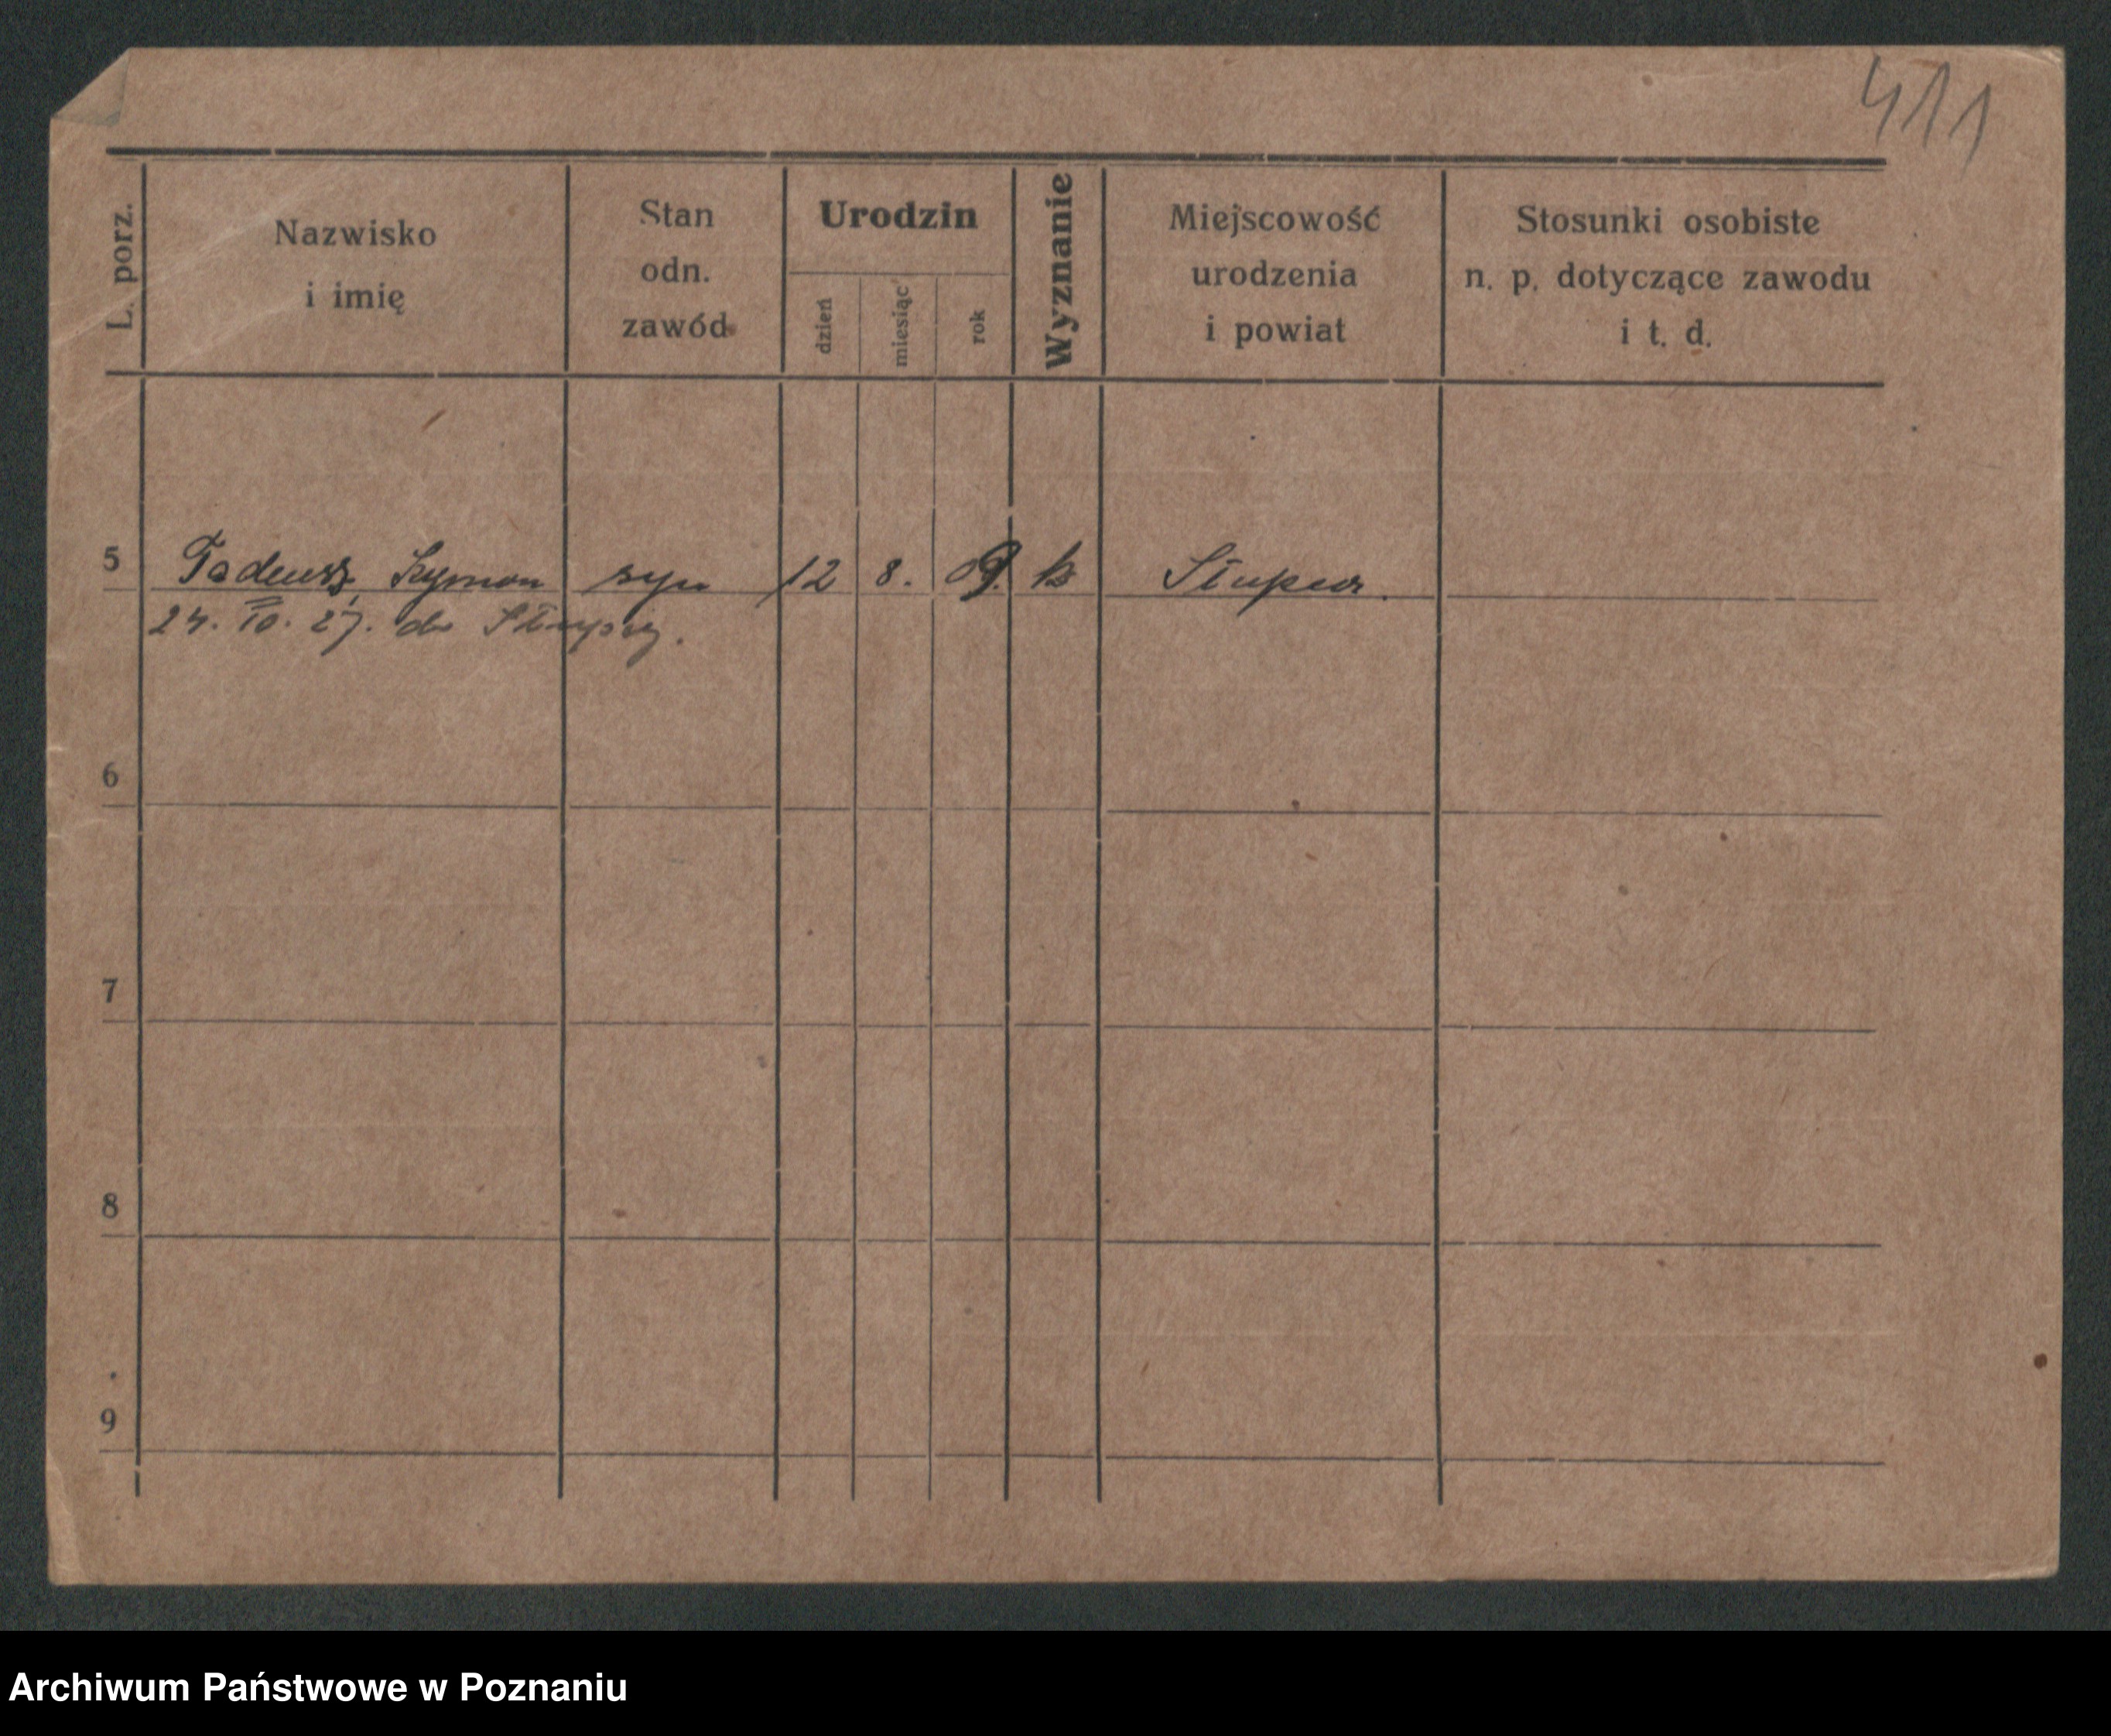 411
L. porz.
Nazwisko
i imię
Stan
odn.
zawód
Urodzin
dzień
miesiąc
rok
Wyznanie
Miejscowość
urodzenia
i powiat
Stosunki osobiste
n. p. dotyczące zawodu
i t. d.
5 Tadeusz, Szymon syn 12 8. 09. k Słupia.
24. 27. do Słupcy.
6
7
8
9
Archiwum Państwowe w Poznaniu